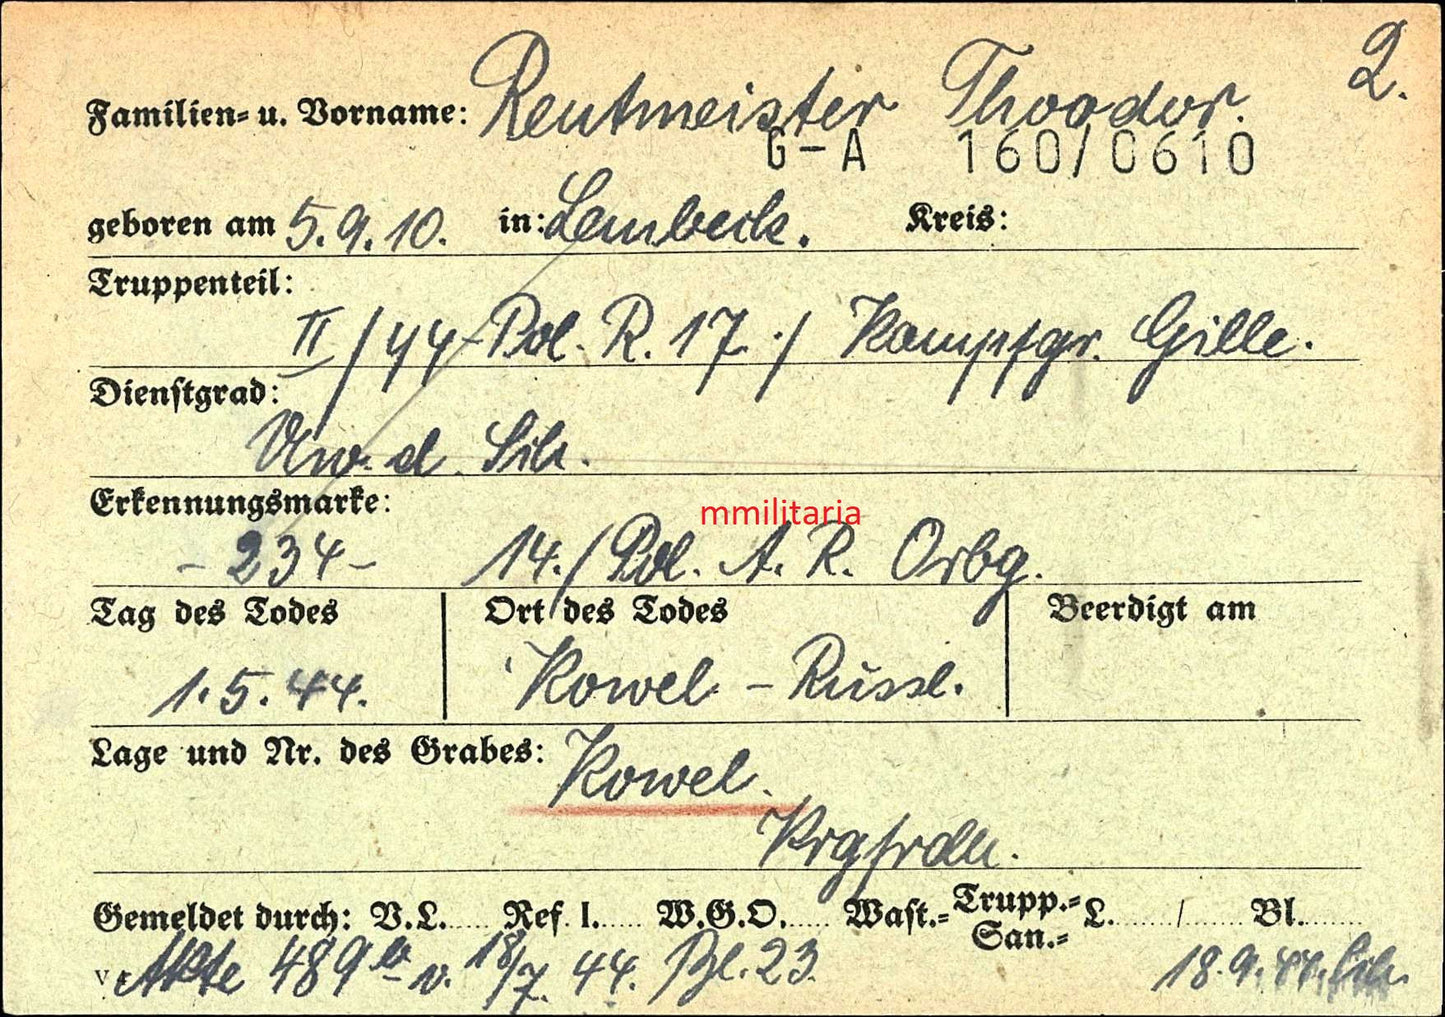 2.
Familien- u. Vorname: Rentmeister Theodor.
G-A 160/0610
geboren am 5.9.10. in: Lembeck. Kreis:
Truppenteil:
II/SS-Pol. R. 17./Kampfgr. Gille.
Dienstgrad:
d.
Erkennungsmarke:
- 234 - 14./Pol. A. R. Orbg.
Tag des Todes Ort des Todes Beerdigt am
1.5.44. Kowel - Russl.
mmilitaria
Lage und Nr. des Grabes: Kowel.
Krgfrdh.
Gemeldet durch: V.L. Ref I. W.G.O. Wast.- Trupp.- San.- L. / Bl.
Akte 489 v. 18/7. 44. Bl. 23 18.9.44.